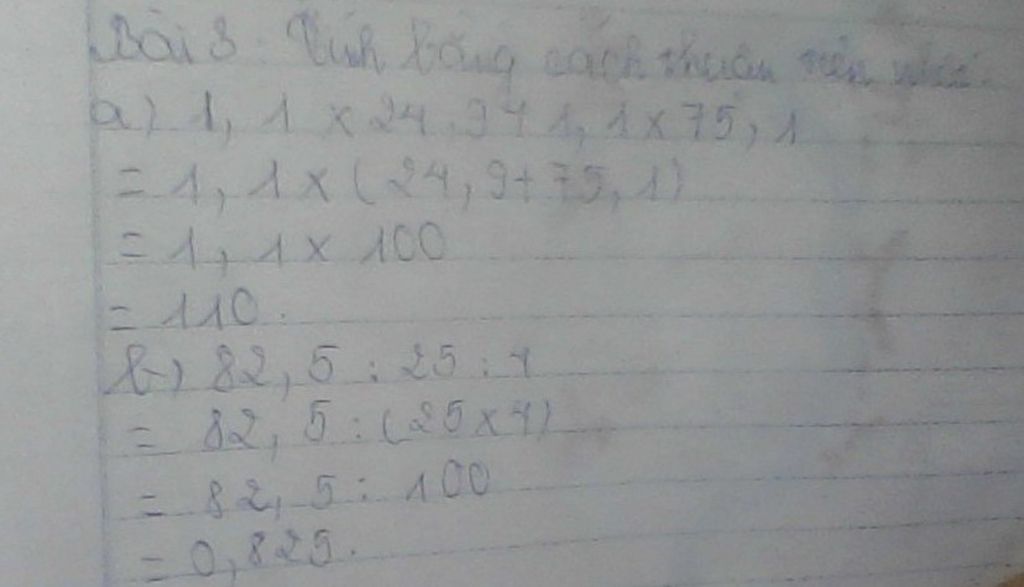 Bài 3: Tính bằng cách thuận tiện nhất.
a) 1,1 x 24,9 + 1,1 x 75,1
= 1,1 x (24,9 + 75,1)
= 1,1 x 100
= 110.
b) 82,5 : 25 : 4
= 82,5 : (25 x 4)
= 82,5 : 100
= 0,825.